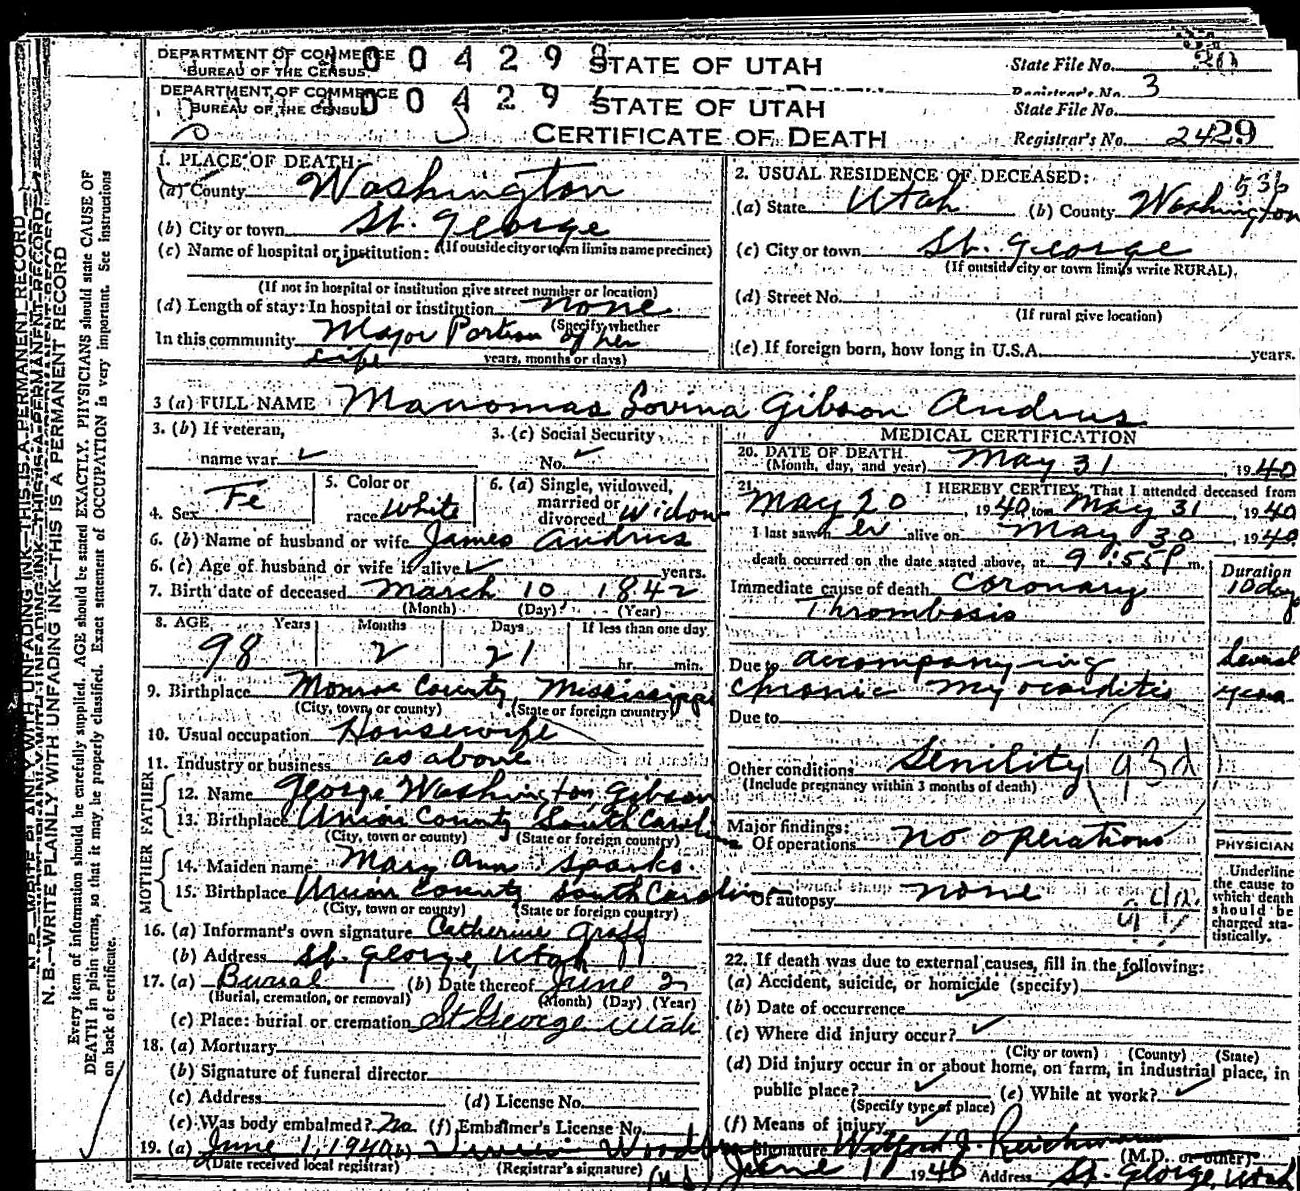 DEPARTMENT OF COMMERCE
BUREAU OF THE CENSUS
STATE OF UTAH
State File No.
3
DEPARTMENT OF COMMERCE
BUREAU OF THE CENSUS
STATE OF UTAH
State File No.
CERTIFICATE OF DEATH
Registrar's No. 2429
1. PLACE OF DEATH:
(a) County Washington
(b) City or town St. George
(If outside city or town limits name precinct)
(c) Name of hospital or institution:
(If not in hospital or institution give street number or location)
(d) Length of stay: In hospital or institution none
(Specify whether
In this community Major Portion of her
life years, months or days)
2. USUAL RESIDENCE OF DECEASED: 536
(a) State Utah (b) County Washington
(c) City or town St. George
(If outside city or town limits write RURAL)
(d) Street No.
(If rural give location)
(e) If foreign born, how long in U.S.A. years.
3 (a) FULL NAME Lovina Gibson Andrus
3. (b) If veteran,
name war
3. (c) Social Security
No.
4. Sex Fe
5. Color or
race White
6. (a) Single, widowed,
married or
divorced Widow
6. (b) Name of husband or wife James Andrus
6. (c) Age of husband or wife if alive years.
7. Birth date of deceased March 10 1842
(Month) (Day) (Year)
8. AGE Years Months Days If less than one day
98 2 21 hr. min.
9. Birthplace Monroe County, Mississippi
(City, town, or county) (State or foreign country)
10. Usual occupation Housewife
11. Industry or business as above
FATHER
12. Name George Washington Gibson
13. Birthplace Union County South Carolina
(City, town or county) (State or foreign country)
MOTHER
14. Maiden name Mary Ann Sparks
15. Birthplace Union County South Carolina
(City, town or county) (State or foreign country)
16. (a) Informant's own signature Catherine Graff
(b) Address St. George, Utah
17. (a) Burial (b) Date thereof June 2
(Burial, cremation, or removal) (Month) (Day) (Year)
(c) Place: burial or cremation St George Utah
18. (a) Mortuary
(b) Signature of funeral director
(c) Address (d) License No.
(e) Was body embalmed? No (f) Embalmer's License No.
19. (a) June 1, 1940 (b)
(Date received local registrar) (Registrar's signature)
MEDICAL CERTIFICATION
20. DATE OF DEATH
(Month, day, and year) May 31, 1940
21. I HEREBY CERTIFY, That I attended deceased from
May 20, 1940 to May 31, 1940
I last saw her alive on May 30, 1940
death occurred on the date stated above, at 9:55 P m.
Duration
Immediate cause of death Coronary 10 days
Thrombosis
Due to accompanying Several
Chronic Myocarditis years
Due to
Other conditions Senility 93d
(Include pregnancy within 3 months of death)
Major findings:
Of operations no operations
Of autopsy none
PHYSICIAN
Underline
the cause to
which death
should be
charged sta-
tistically.
22. If death was due to external causes, fill in the following:
(a) Accident, suicide, or homicide (specify)
(b) Date of occurrence
(c) Where did injury occur?
(City or town) (County) (State)
(d) Did injury occur in or about home, on farm, in industrial place, in
public place? (e) While at work?
(Specify type of place)
(f) Means of injury
Signature Wilford J. Reichmann (M.D. or other)
June 1 1940 Address St. George, Utah
N. B.—WRITE PLAINLY WITH UNFADING INK—THIS IS A PERMANENT RECORD
Every item of information should be carefully supplied. AGE should be stated EXACTLY. PHYSICIANS should state CAUSE OF
DEATH in plain terms, so that it may be properly classified. Exact statement of OCCUPATION is very important. See instructions
on back of certificate.